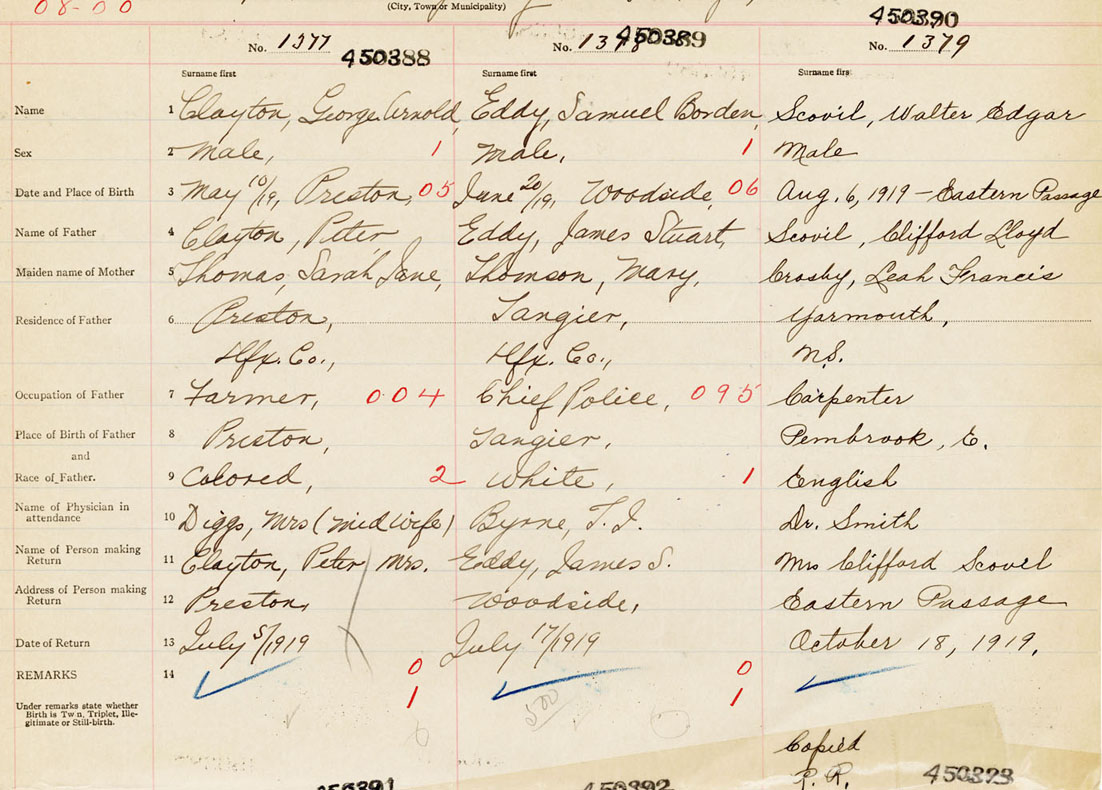 08-00
(City, Town or Municipality)
450390
No. 1377 450388 No. 1378 450389 No. 1379
Surname first Surname first Surname first
Name 1 Clayton, George Arnold, Eddy, Samuel Borden, Scovil, Walter Edgar
Sex 2 Male, 1 Male, 1 Male
Date and Place of Birth 3 May 10/19, Preston, 05 June 20/19, Woodside, 06 Aug. 6, 1919 - Eastern Passage
Name of Father 4 Clayton, Peter, Eddy, James Stuart, Scovil, Clifford Lloyd
Maiden name of Mother 5 Thomas, Sarah Jane, Thomson, Mary, Crosby, Leah Francis
Residence of Father 6 Preston, Tangier, Yarmouth,
Hfx. Co., Hfx. Co., N.S.
Occupation of Father 7 Farmer, 004 Chief Police, 095 Carpenter
Place of Birth of Father 8 Preston, Tangier, Pembrook, E.
and
Race of Father. 9 Colored, 2 White, 1 English
Name of Physician in
attendance 10 Diggs, Mrs (Midwife) Byrne, T. J. Dr. Smith
Name of Person making
Return 11 Clayton, Peter Mrs. Eddy, James S. Mrs Clifford Scovil
Address of Person making
Return 12 Preston, Woodside, Eastern Passage
Date of Return 13 July 5/1919 July 17/1919 October 18, 1919.
REMARKS 14 0 0
Under remarks state whether
Birth is Twn, Triplet, Ille-
gitimate or Still-birth. 1 1
500
6 6
Copied
P. R. 450373
450391 450392